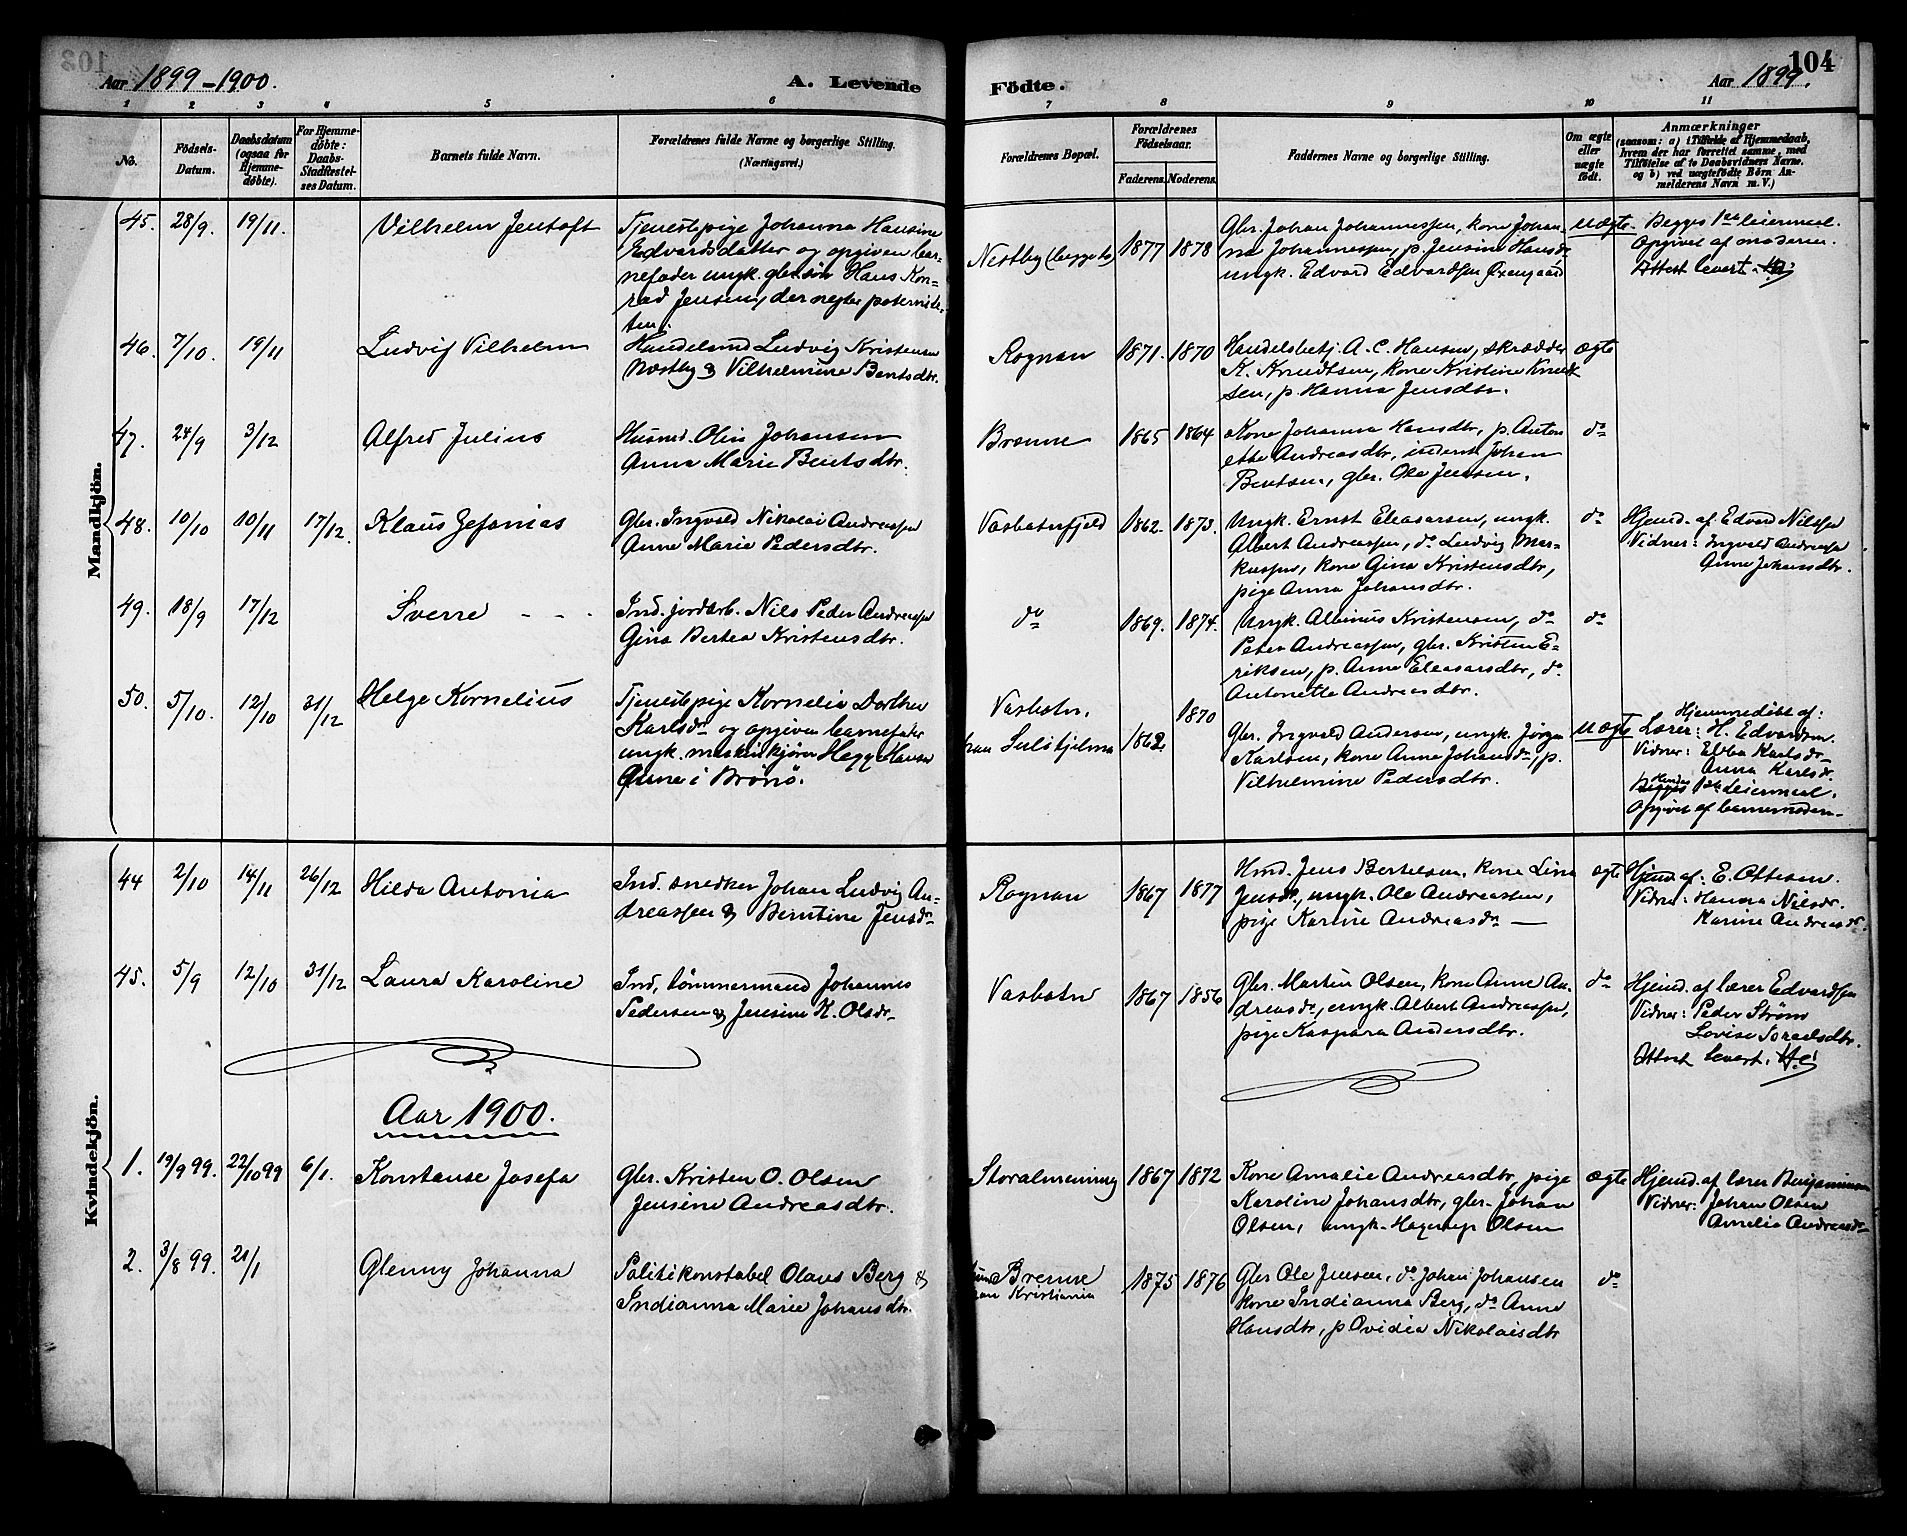 103
Aar 1899-1900.
A. Levende
1 2 3 4 5 6
No.
Födsels-Datum.
Daabsdatum (ogsaa for Hjemme-döbte).
For Hjemme-döbte: Daabs-Stadfæstel-ses Datum.
Barnets fulde Navn.
Forældrenes fulde Navne og borgerlige Stilling.
(Næringsvei.)
Mandkjön.
45. 28/9. 19/11. Vilhelm Jentoft
Tjenestepige Johanna Hansine
Edvardsdatter og opgiven bar-
nefader ungk. gbrsøn Hans Kon-
rad Jensen, der negter paternite-
ten.
46. 7/10. 19/11 Ludvig Vilhelm
Handelsmd Ludvig Kristensen
Næstby & Vilhelmine Bentsdtr.
47. 24/9 3/12 Alfred Julius
Husmd. Olin Johansen
Anna Marie Bentsdtr.
48. 10/10 10/11 17/12. Klaus Zefanias
Gbr. Ingvald Nikolai Andreassen
Anne Marie Pedersdtr.
49. 18/9 17/12 Sverre - - -
Ind. jordarb. Nils Peder Andreassen
Gina Bertea Kristensdtr.
50. 5/10. 12/10 31/12 Helge Kornelius
Tjenestepige Kornelia Dorthea
Karlsdr og opgiven barnefader
ungk. maskinkjører Hegge Hansen
Qume i Brønø.
Kvindekjön.
44 2/10 14/11 26/12 Hilda Antonia
Ind. snedker Johan Ludvig An-
dreassen & Berntine Jensdr
45. 5/9 12/10 31/12 Laura Karoline
Ind. tømmermand Johannes
Pedersen & Jensine K. Olsdr
Aar 1900.
1. 19/9 99. 22/10 99 6/1. Konstanse Josefa
Gbr. Kristen O. Olsen
Jensine Andreasdtr.
2. 3/8 99. 21/1 Glenny Johanna
Politikonstabel Olaus Berg &
Indianna Marie Johansdtr.
104
Födte.
Aar 1899.
7 8 9 10 11
Forældrenes Bopæl.
Forældrenes Födselsaar.
Faderens. Moderens.
Faddernes Navne og borgerlige Stilling.
Om ægte eller uægte födt.
Anmærkninger
(saasom: a) i Tilfælde af Hjemmedaab,
hvem der har forrettet samme, med
Tilföielse af to Daabsvidners Navne.
og b) ved uægtefödte Börn An-
melderens Navn m. V.)
Nestby (begge to) 1877 1878
Gbr. Johan Johannessen, kone Johan-
na Johannessen, p. Jensine Hansdr
ungk. Edvard Edvardsen Øxengaard
uægte. Begges 1ste leiermaal.
Opgivet af moderen.
Attest levert.
Rognan 1871. 1870
Handelsbetj. A. C. Hansen, skrædder
K. Knudtsen, kone Kristine Knudt-
sen, p. Hanna Jensdtr.
ægte
Brænne 1865 1864
Kone Johanna Hansdtr, p. Anton
ette Andreasdtr, inderst Johan
Bentsen, gbr. Ole Jensen.
do
Vasbotnfjeld 1862. 1873.
Ungk. Ernst Eleasersen, ungk.
Albert Andreassen, do Ludvig Mar-
kussen, kone Gina Kristensdtr,
pige Anna Johansdtr.
do Hjemd. af Edvard Nilssen
Vidner: Ingvald Andreassen
Anne Johansdtr.
do 1869. 1874.
Ungk. Albinus Kristensen, do
Peter Andreassen, gbr. Kristen E-
riksen, p. Anne Eleasarsdtr, do
Antonette Andreasdtr.
do
Vasbotn.
han Sulitjelma 1862. 1870
Gbr. Ingvald Andersen, ungk. Jørgen
Karlsen, kone Anne Johansdr, p.
Vilhelmine Pedersdtr.
uægte Hjemmedøbt af:
Lærer: H. Edvardsen.
Vidner: Ebba Karlsdr
Anna Karlsdr.
Hendes
Begges 1ste leiermaal.
Opgivet af barnemoderen
Rognan 1867 1877
Hmd. Jens Bertelsen, kone Lina
Jensdr, ungk. Ole Andreassen,
pige Karine Andreasdr —
ægte Hjemd. af: E. Ottesen.
Vidner: Hanna Nilsdr.
Karine Andreasdr.
Vasbotn 1867 1856
Gbr. Martin Olsen, kone Anne An-
dreasdr, ungk. Albert Andreassen,
pige Kaspara Andersdtr.
do Hjemd. af lærer Edvardsen
Vidner: Peder Strøm
Lovise Israelsdtr.
Attest levert.
Storalmening 1867 1872
Kone Amalie Andreasdtr, pige
Karoline Johansdtr, gbr. Johan
Olsen, ungk. Hagerup Olsen
ægte Hjemd. af lærer Benjaminsen
Vidner: Johan Olsen
Amelia Andreasdr
hun Brenne
han Kristiania 1875 1876
Gbr Ole Jensen, do Johan Johansen
kone Indianna Berg, do Anne
Hansdtr, p Ovidia Nikolaisdtr
do